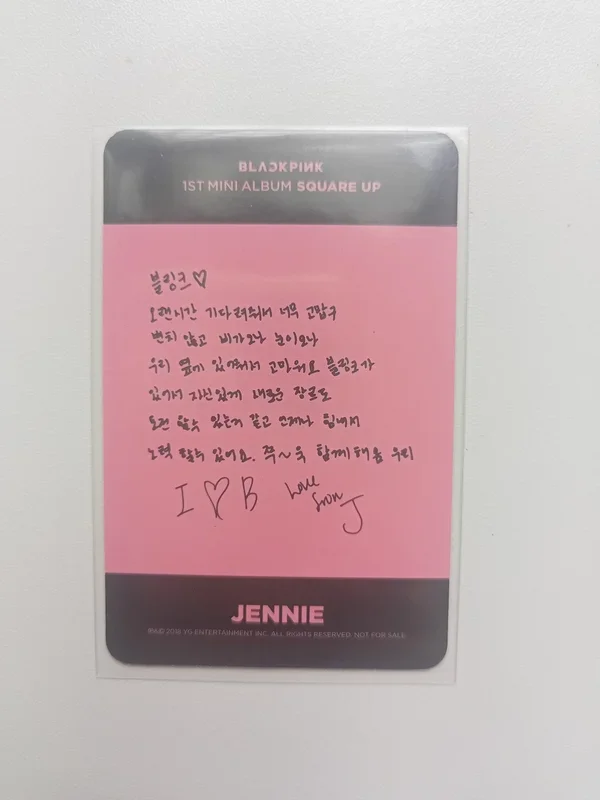 BLACKPINK
1ST MINI ALBUM SQUARE UP
블링크♡
오랜시간 기다려줘서 너무 고맙구
변치 않고 비가오나 눈이오나
우리 옆에 있어줘서 고마워요 블링크가
있어서 자신있게 새로운 장르도
도전 할수 있는거 같고 언제나 힘내서
노력 할수 있어요. 쭈~욱 함께해욤 우리
I ♡ B Love from J
JENNIE
2018 YG ENTERTAINMENT INC. ALL RIGHTS RESERVED. NOT FOR SALE.